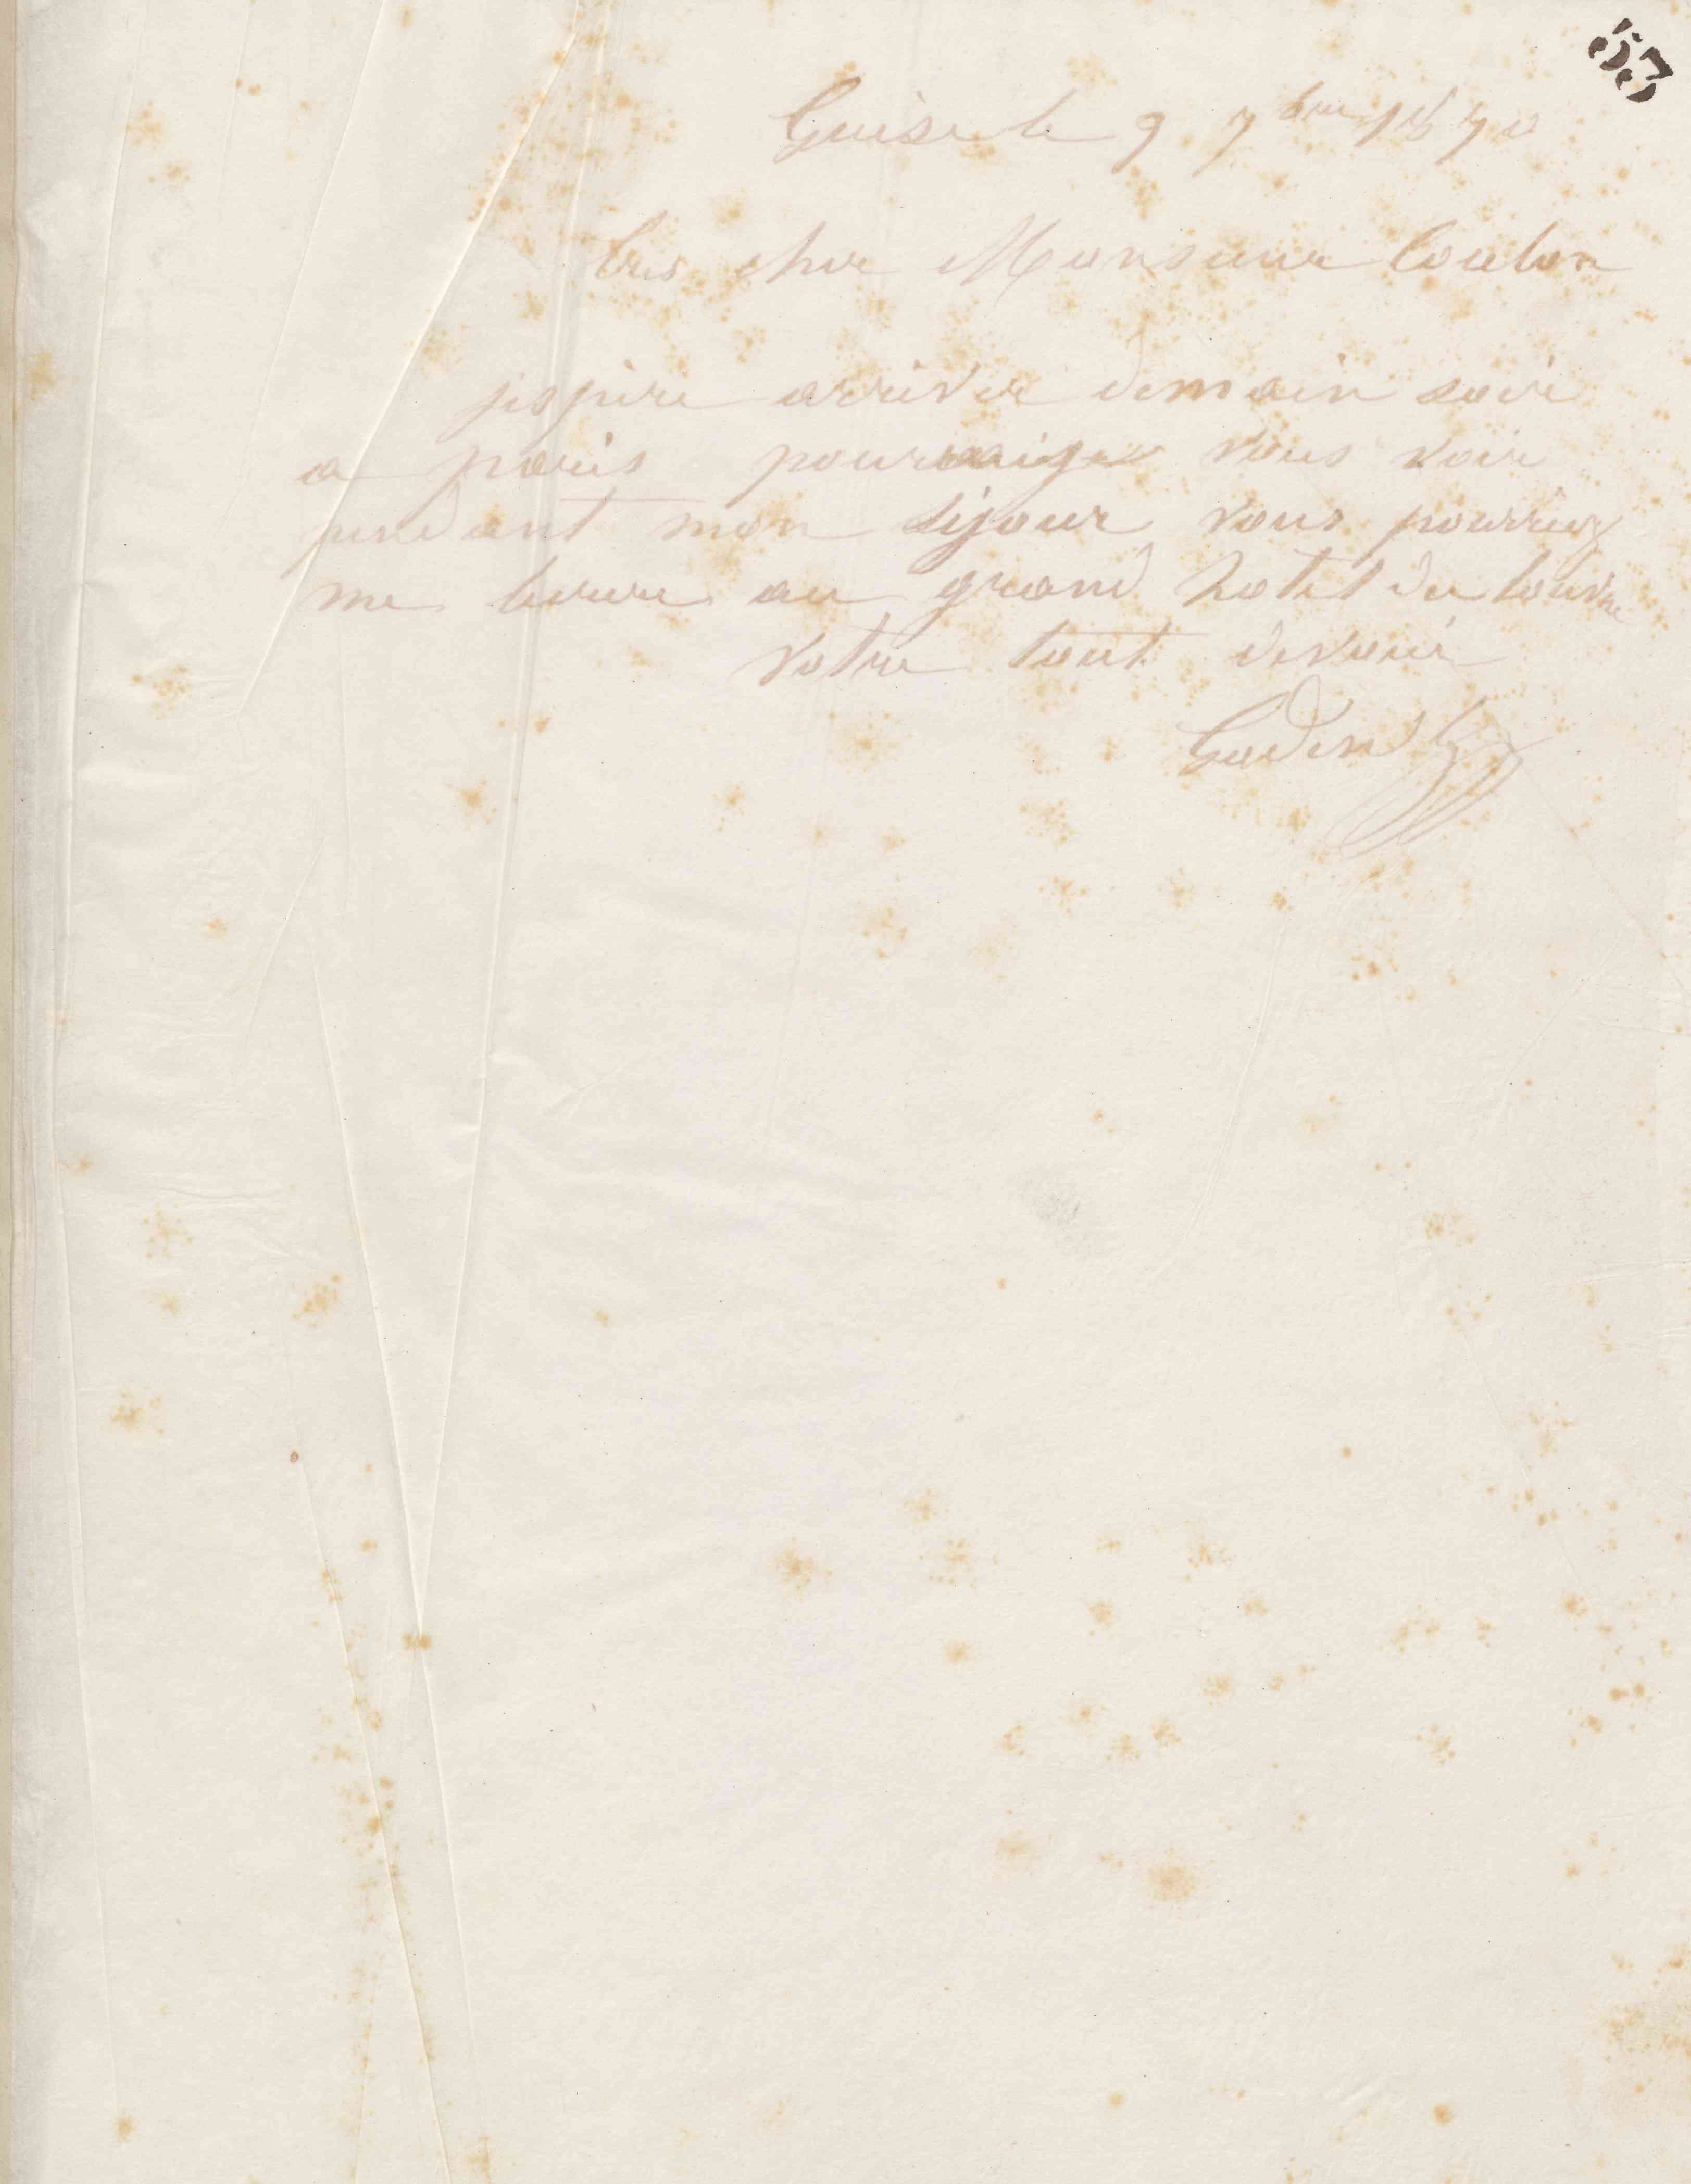 53
Guise le 9 7bre 1870
très cher Monsieur Coulon
jespère arriver demain soir
a paris pourraige vous voir
pendant mon séjour vous pourriez
me écrire au grand hotel du louvre
votre tout devoué
Godin